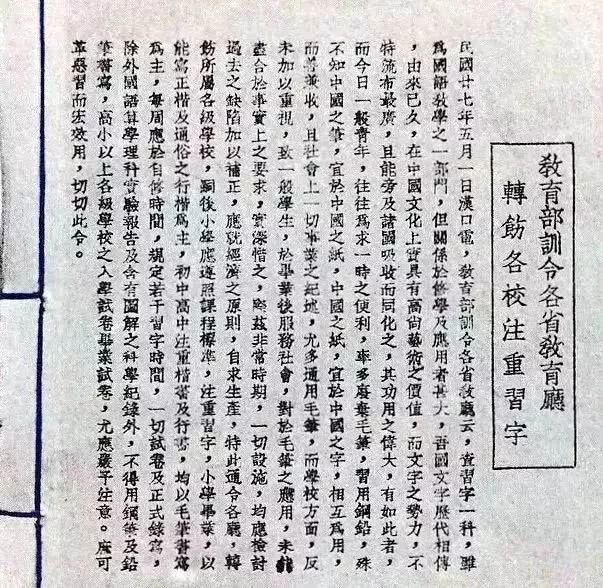 教育部訓令各省教育廳
轉飭各校注重習字
民國廿七年五月一日漢口電,教育部訓令各省教廳云,查習字一科,雖
爲國語教學之一部門,但關係於修學及應用者甚大,吾國文字歷代相傳
,由來已久,在中國文化上實具有高尚藝術之價值,而文字之勢力,不
特流布最廣,且能旁及諸國吸收而同化之,其功用之偉大,有如此者,
而今日一般青年,往往爲求一時之便利,率多廢棄毛筆,習用鋼鉛,殊
不知中國之筆,宜於中國之紙,中國之紙,宜於中國之字,相互爲用,
而善兼收,且社會上一切事業之紀述,尤多通用毛筆,而學校方面,反
未加以重視,致一般學生,於畢業後服務社會,對於毛筆之應用,未能
盡合於事實上之要求,實深惜之,際茲非常時期,一切設施,均應檢討
過去之缺陷加以補正,應就經濟之原則,自求生產,特此通令各廳,轉
飭所屬各級學校,嗣後小學應遵照課程標準,注重習字,小學畢業,以
能寫正楷及通俗之行楷爲主,初中高中注重楷書及行書,均以毛筆書寫
爲主,每周應於自修時間,規定若干習字時間,一切試卷及正式錄寫,
除外國語算學理科實驗報告及含有圖解之科學紀錄外,不得用鋼筆及鉛
筆書寫,高小以上各級學校之入學試卷畢業試卷,尤應嚴予注意。庶可
革惡習而宏效用,切切此令。